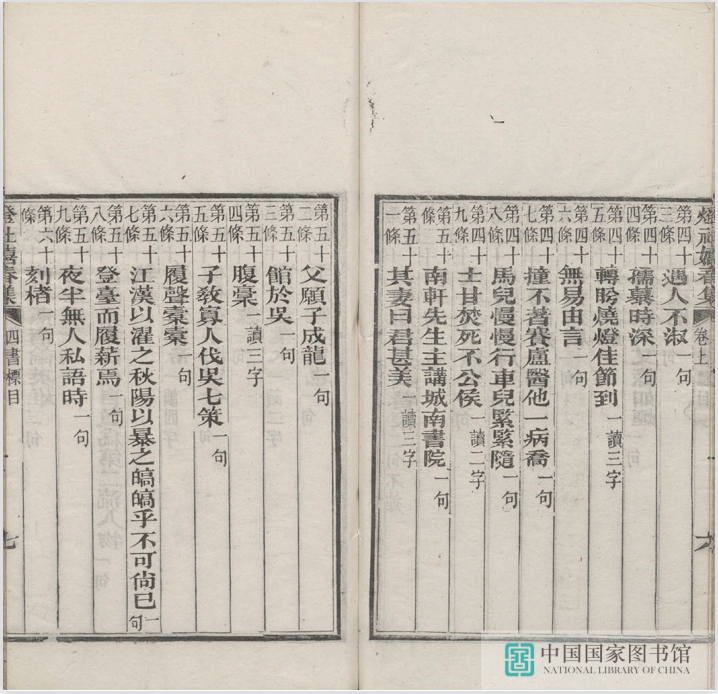 燈社嬉春集 卷上 六
第四十三條 遇人不淑 一句
第四十四條 孺慕時深 一句
第四十五條 轉盼燒燈佳節到 一讀三字
第四十六條 無易由言 一句
第四十七條 撞不著賽盧醫他一病喬 一句
第四十八條 馬兒慢慢行車兒緊緊隨 一句
第四十九條 士甘焚死不公侯 一讀二字
第五十條 南軒先生主講城南書院 一句
第五十一條 其妻曰君甚美 一讀三字
第五十二條 父願子成龍 一句
第五十三條 館於吳 一句
第五十四條 腹稾 一讀三字
第五十五條 子敎算人伐吳七策 一句
第五十六條 履聲橐橐 一句
第五十七條 江漢以濯之秋陽以暴之皜皜乎不可尙已 一句
第五十八條 登臺而履薪焉 一句
第五十九條 夜半無人私語時 一句
第六十條 刻楮 一句
燈社嬉春集 四書標目 七
中国国家图书馆
NATIONAL LIBRARY OF CHINA